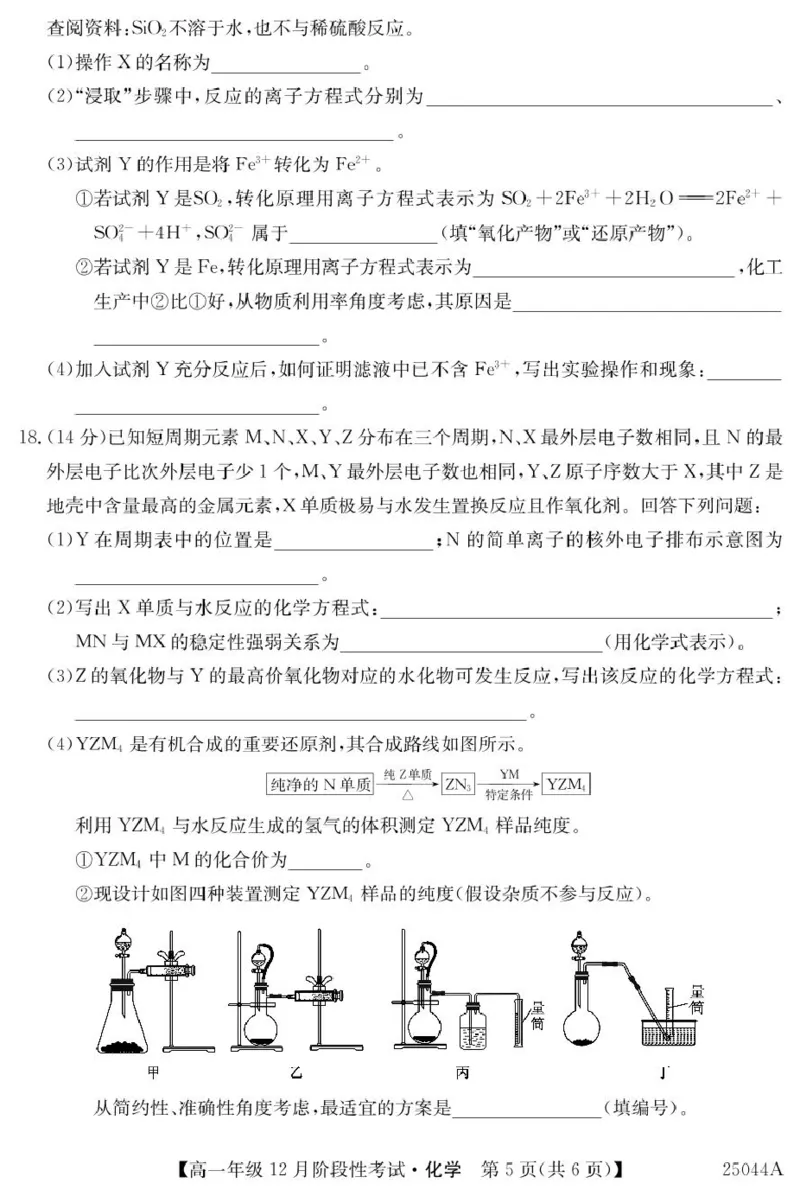 查阅资料:SiO₂不溶于水,也不与稀硫酸反应。
(1)操作X的名称为____________。
(2)“浸取”步骤中,反应的离子方程式分别为____________________________、
____________________________。
(3)试剂Y的作用是将Fe³⁺转化为Fe²⁺。
①若试剂Y是SO₂,转化原理用离子方程式表示为SO₂+2Fe³⁺+2H₂O══2Fe²⁺+
SO₄²⁻+4H⁺,SO₄²⁻属于____________(填“氧化产物”或“还原产物”)。
②若试剂Y是Fe,转化原理用离子方程式表示为____________________,化工
生产中②比①好,从物质利用率角度考虑,其原因是____________________
____________________。
(4)加入试剂Y充分反应后,如何证明滤液中已不含Fe³⁺,写出实验操作和现象:______
____________________。
18.(14分)已知短周期元素M、N、X、Y、Z分布在三个周期,N、X最外层电子数相同,且N的最
外层电子比次外层电子少1个,M、Y最外层电子数也相同,Y、Z原子序数大于X,其中Z是
地壳中含量最高的金属元素,X单质极易与水发生置换反应且作氧化剂。回答下列问题:
(1)Y在周期表中的位置是____________;N的简单离子的核外电子排布示意图为
____________________。
(2)写出X单质与水反应的化学方程式:______________________________;
MN与MX的稳定性强弱关系为____________________(用化学式表示)。
(3)Z的氧化物与Y的最高价氧化物对应的水化物可发生反应,写出该反应的化学方程式:
______________________________。
(4)YZM₄是有机合成的重要还原剂,其合成路线如图所示。
纯净的N单质 纯Z单质 △ ZN₃ YM 特定条件 YZM₄
利用YZM₄与水反应生成的氢气的体积测定YZM₄样品纯度。
①YZM₄中M的化合价为______。
②现设计如图四种装置测定YZM₄样品的纯度(假设杂质不参与反应)。
量筒 量筒
甲 乙 丙 丁
从简约性、准确性角度考虑,最适宜的方案是____________(填编号)。
【高一年级12月阶段性考试·化学 第5页(共6页)】 25044A